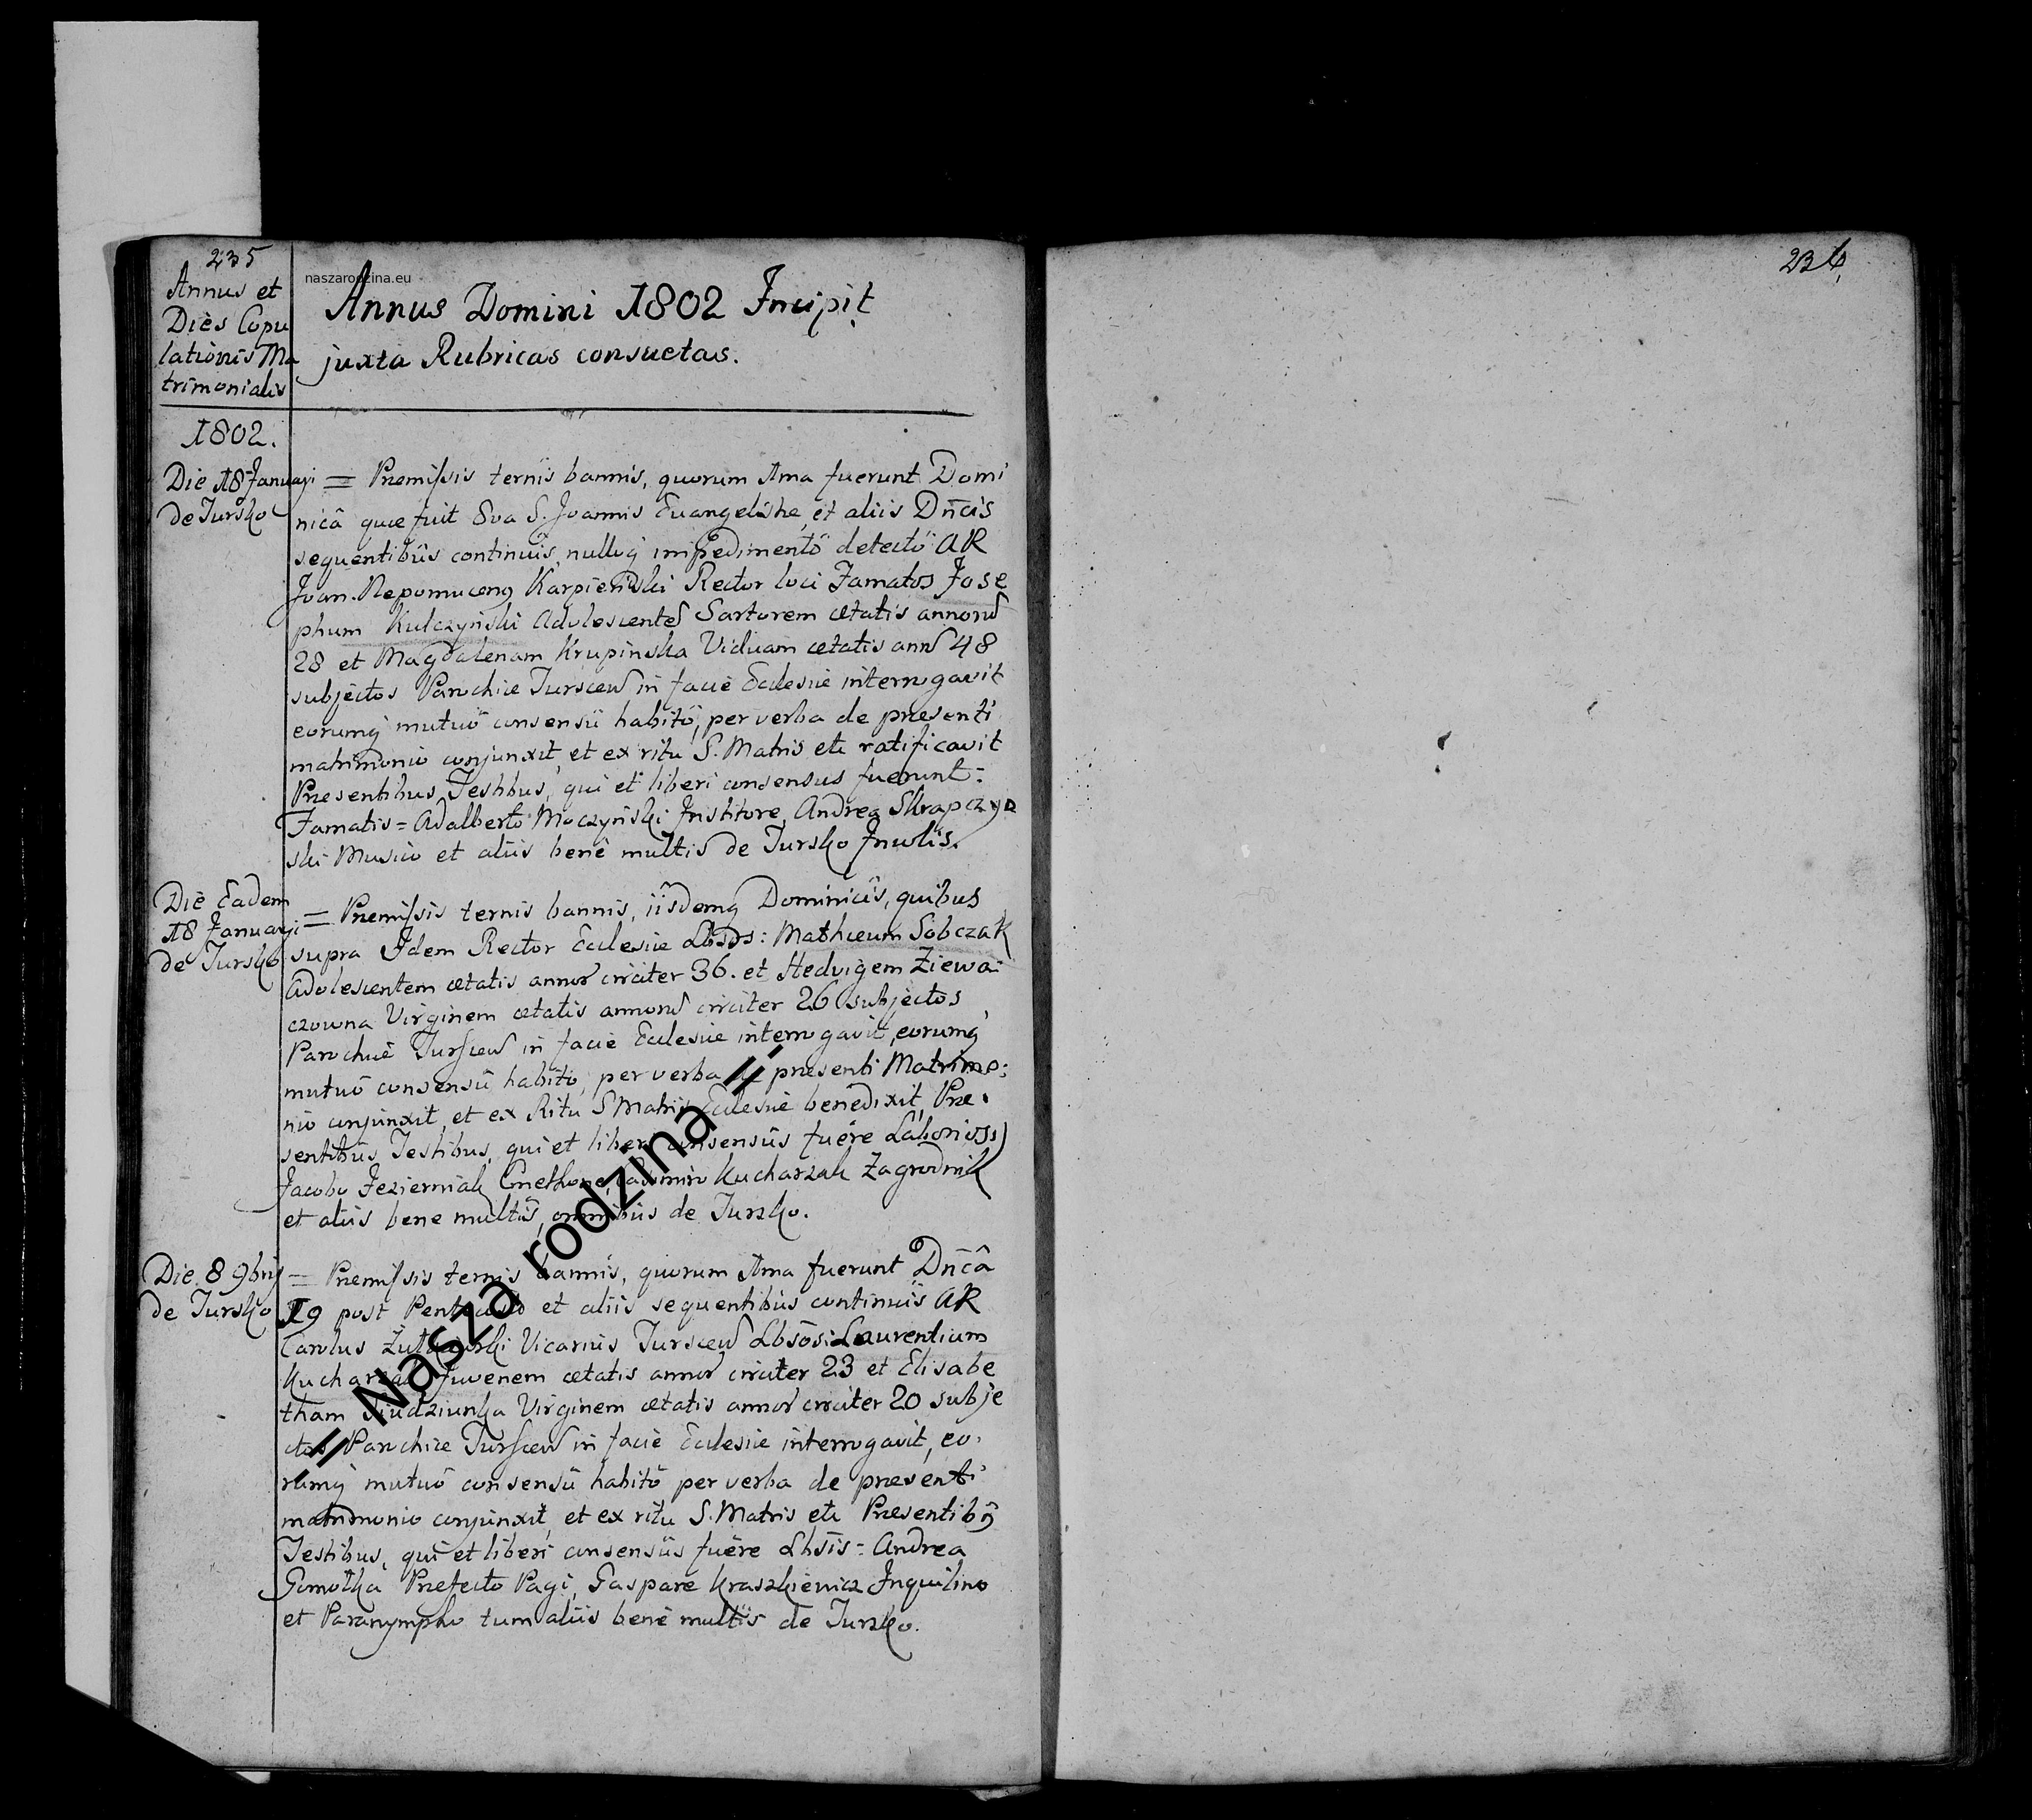 235
Annus et
Dies Copu
lationis Ma
trimonialis
naszarodzina.eu
Annus Domini 1802 Incipit
juxta Rubricas consuetas.
1802.
Die 18 Januarji
de Tursko
= Premissis ternis bannis, quorum 1ma fuerunt Domi
nicâ quae fuit S. Joannis Evangelistae, et aliis Dn̄cis
sequentibus continuis, nulloq impedimentô detectô AR
Joan. Nepomucenq Karpieński Rector loci Famatos Jose
phum Kulczyński Adolescentem Sartorem aetatis annorum
28 et Magdalenam Krupinska Viduam aetatis ann 48
subjectos Parochiae Turscen in facie Ecclesiae interrogavit
eorumq mutuô consensû habitô, per verba de praesenti
matrimonio conjunxit, et ex ritu S. Matris etc ratificavit
Praesentibus Testibus, qui et liberi consensus fuerunt =
Famatis = Adalberto Moczyński Institore, Andrea Skrapczyn
ski Musico et aliis bene multis de Tursko Incolis.
Die Eadem
18 Januarji
de Tursko
= Premissis ternis bannis, iisdemq Dominicis, quibus
supra Idem Rector Ecclesiae Lbsos: Mathaeum Sobczak
Adolescentem aetatis annor circiter 36. et Hedvigem Ziewa:
czowna Virginem aetatis annorum circiter 26 subjectos
Parochiae Turscen in facie Ecclesiae interrogavit, eorumq
mutuô consensû habitô, per verba de praesenti Matrimo:
nio conjunxit, et ex Ritu S Matris Ecclesiae benedixit, Prae:
sentibus Testibus, qui et liberi consensûs fuêre Laboriosis
Jacobo Jezierniak Cmethone, Casimiro Kucharzak Zagrodnik
et aliis bene multis, omnibus de Tursko.
Die 8 9bris
de Tursko
= Premissis ternis bannis, quorum 1ma fuerunt Dn̄câ
19 post Pentecost et aliis sequentibus continuis AR
Carolus Vicarius Tursцen Lbsos: Laurentium
Kucharzak Juvenem aetatis annor circiter 23 et Elisabe
tham Siudziunka Virginem aetatis annor circiter 20 subje
ctos Parochiae Turscen in facie Ecclesiae interrogavit, eo:
rumq mutuô consensû habitô per verba de praesenti
matrimonio conjunxit, et ex ritu S. Matris etc Praesentibq
Testibus, qui et liberi consensûs fuêre Lbsis = Andrea
Gomołka Praefecto Pagi, Gaspare Kraszkiewicz Inquilino
et Paranympho tum aliis bene multis de Tursko.
// Nasza rodzina //
236